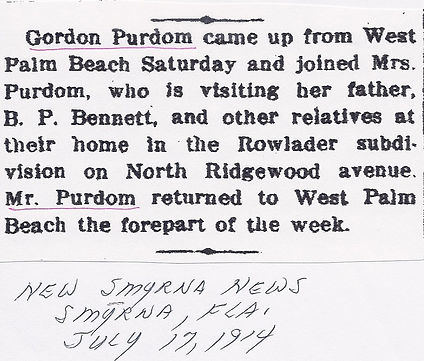 Gordon Purdom came up from West
Palm Beach Saturday and joined Mrs.
Purdom, who is visiting her father,
B. P. Bennett, and other relatives at
their home in the Rowlader subdi-
vision on North Ridgewood avenue.
Mr. Purdom returned to West Palm
Beach the forepart of the week.
NEW SMYRNA NEWS
SMYRNA, FLA.
JULY 17, 1914